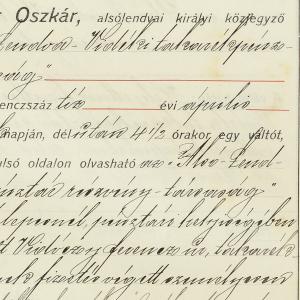 r Oszkár, alsólendvai királyi közjegyző
Lendva-Vidéki takarékpénz-
ság"
enczszáz tiz évi április
napján, délután 4 1/2 órakor egy váltót,
ulsó oldalon olvasható az „Alsó-Lend-
pénztár részvény-társaság"
helyiségében
ferencz úr, takarék
fizetés végett személyesen